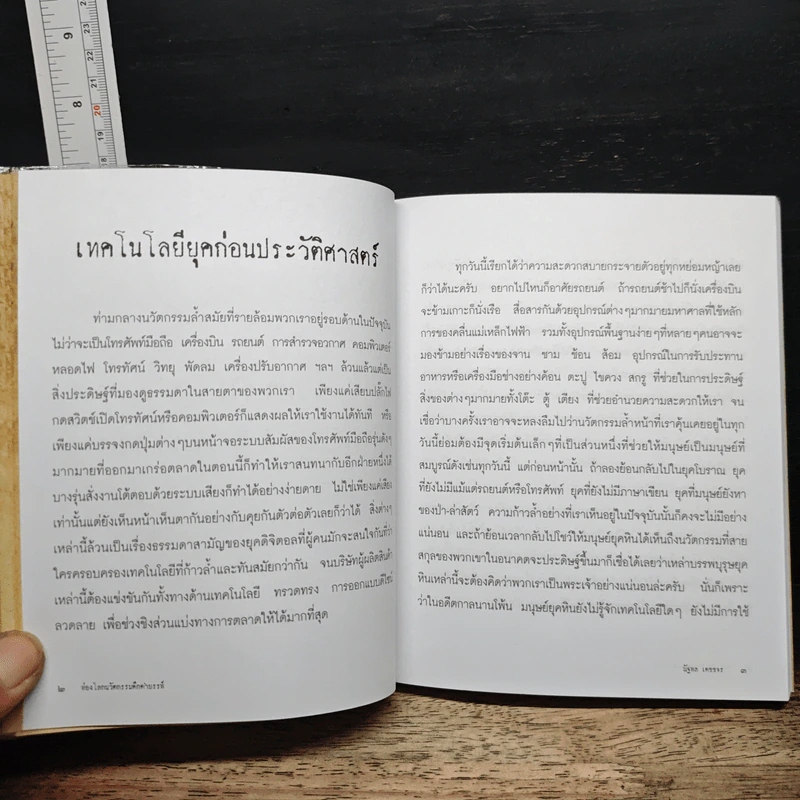 9
8
23
22
21
20
19
18
เทคโนโลยียุคก่อนประวัติศาสตร์
ท่ามกลางนวัตกรรมล้ำสมัยที่รายล้อมพวกเราอยู่รอบด้านในปัจจุบัน
ไม่ว่าจะเป็นโทรศัพท์มือถือ เครื่องบิน รถยนต์ การสำรวจอวกาศ คอมพิวเตอร์
หลอดไฟ โทรทัศน์ วิทยุ พัดลม เครื่องปรับอากาศ ฯลฯ ล้วนแล้วแต่เป็น
สิ่งประดิษฐ์ที่มองดูธรรมดาในสายตาของพวกเรา เพียงแค่เสียบปลั๊กไฟ
กดสวิตช์เปิดโทรทัศน์หรือคอมพิวเตอร์ก็แสดงผลให้เราใช้งานได้ทันที หรือ
เพียงแค่บรรจงกดปุ่มต่างๆบนหน้าจอระบบสัมผัสของโทรศัพท์มือถือรุ่นดังๆ
มากมายที่ออกมาเกร่อตลาดในตอนนี้ก็ทำให้เราสนทนากับอีกฝ่ายหนึ่งได้
บางรุ่นสั่งงานโต้ตอบด้วยระบบเสียงก็ทำได้อย่างง่ายดาย ไม่ใช่เพียงแค่เสียง
เท่านั้นแต่ยังเห็นหน้าเห็นตากันอย่างกับคุยกันตัวต่อตัวเลยก็ว่าได้ สิ่งต่างๆ
เหล่านี้ล้วนเป็นเรื่องธรรมดาสามัญของยุคดิจิตอลที่ผู้คนมักจะสนใจกันที่ว่า
ใครครอบครองเทคโนโลยีที่ก้าวล้ำและทันสมัยกว่ากัน จนบริษัทผู้ผลิตสินค้า
เหล่านี้ต้องแข่งขันกันทั้งทางด้านเทคโนโลยี ทรวดทรง การออกแบบดีไซน์
ลวดลาย เพื่อช่วงชิงส่วนแบ่งทางการตลาดให้ได้มากที่สุด
๒ ท่องโลกนวัตกรรมดึกดำบรรพ์
ทุกวันนี้เรียกได้ว่าความสะดวกสบายกระจายตัวอยู่ทุกหย่อมหญ้าเลย
ก็ว่าได้นะครับ อยากไปไหนก็อาศัยรถยนต์ ถ้ารถยนต์ช้าไปก็นั่งเครื่องบิน
จะข้ามเกาะก็นั่งเรือ สื่อสารกันด้วยอุปกรณ์ต่างๆมากมายมหาศาลที่ใช้หลัก
การของคลื่นแม่เหล็กไฟฟ้า รวมทั้งอุปกรณ์พื้นฐานง่ายๆที่หลายๆคนอาจจะ
มองข้ามอย่างเรื่องของจาน ชาม ช้อน ส้อม อุปกรณ์ในการรับประทาน
อาหารหรือเครื่องมือช่างอย่างค้อน ตะปู ไขควง สกรู ที่ช่วยในการประดิษฐ์
สิ่งของต่างๆมากมายทั้งโต๊ะ ตู้ เตียง ที่ช่วยอำนวยความสะดวกให้เรา จน
เชื่อว่าบางครั้งเราอาจจะหลงลืมไปว่านวัตกรรมล้ำหน้าที่เราคุ้นเคยอยู่ในทุก
วันนี้ย่อมต้องมีจุดเริ่มต้นเล็กๆที่เป็นส่วนหนึ่งที่ช่วยให้มนุษย์เป็นมนุษย์ที่
สมบูรณ์ดังเช่นทุกวันนี้ แต่ก่อนหน้านั้น ถ้าลองย้อนกลับไปในยุคโบราณ ยุค
ที่ยังไม่มีแม้แต่รถยนต์หรือโทรศัพท์ ยุคที่ยังไม่มีภาษาเขียน ยุคที่มนุษย์ยังหา
ของป่า-ล่าสัตว์ ความก้าวล้ำอย่างที่เราเห็นอยู่ในปัจจุบันนั้นก็คงจะไม่มีอย่าง
แน่นอน และถ้าย้อนเวลากลับไปโชว์ให้มนุษย์ยุคหินได้เห็นถึงนวัตกรรมที่สาย
สกุลของพวกเขาในอนาคตจะประดิษฐ์ขึ้นมาก็เชื่อได้เลยว่าเหล่าบรรพบุรุษยุค
หินเหล่านี้จะต้องคิดว่าพวกเราเป็นพระเจ้าอย่างแน่นอนล่ะครับ นั่นก็เพราะ
ว่าในอดีตกาลนานโพ้น มนุษย์ยุคหินยังไม่รู้จักเทคโนโลยีใดๆ ยังไม่มีการใช้
ณัฐพล เดชขจร ๓